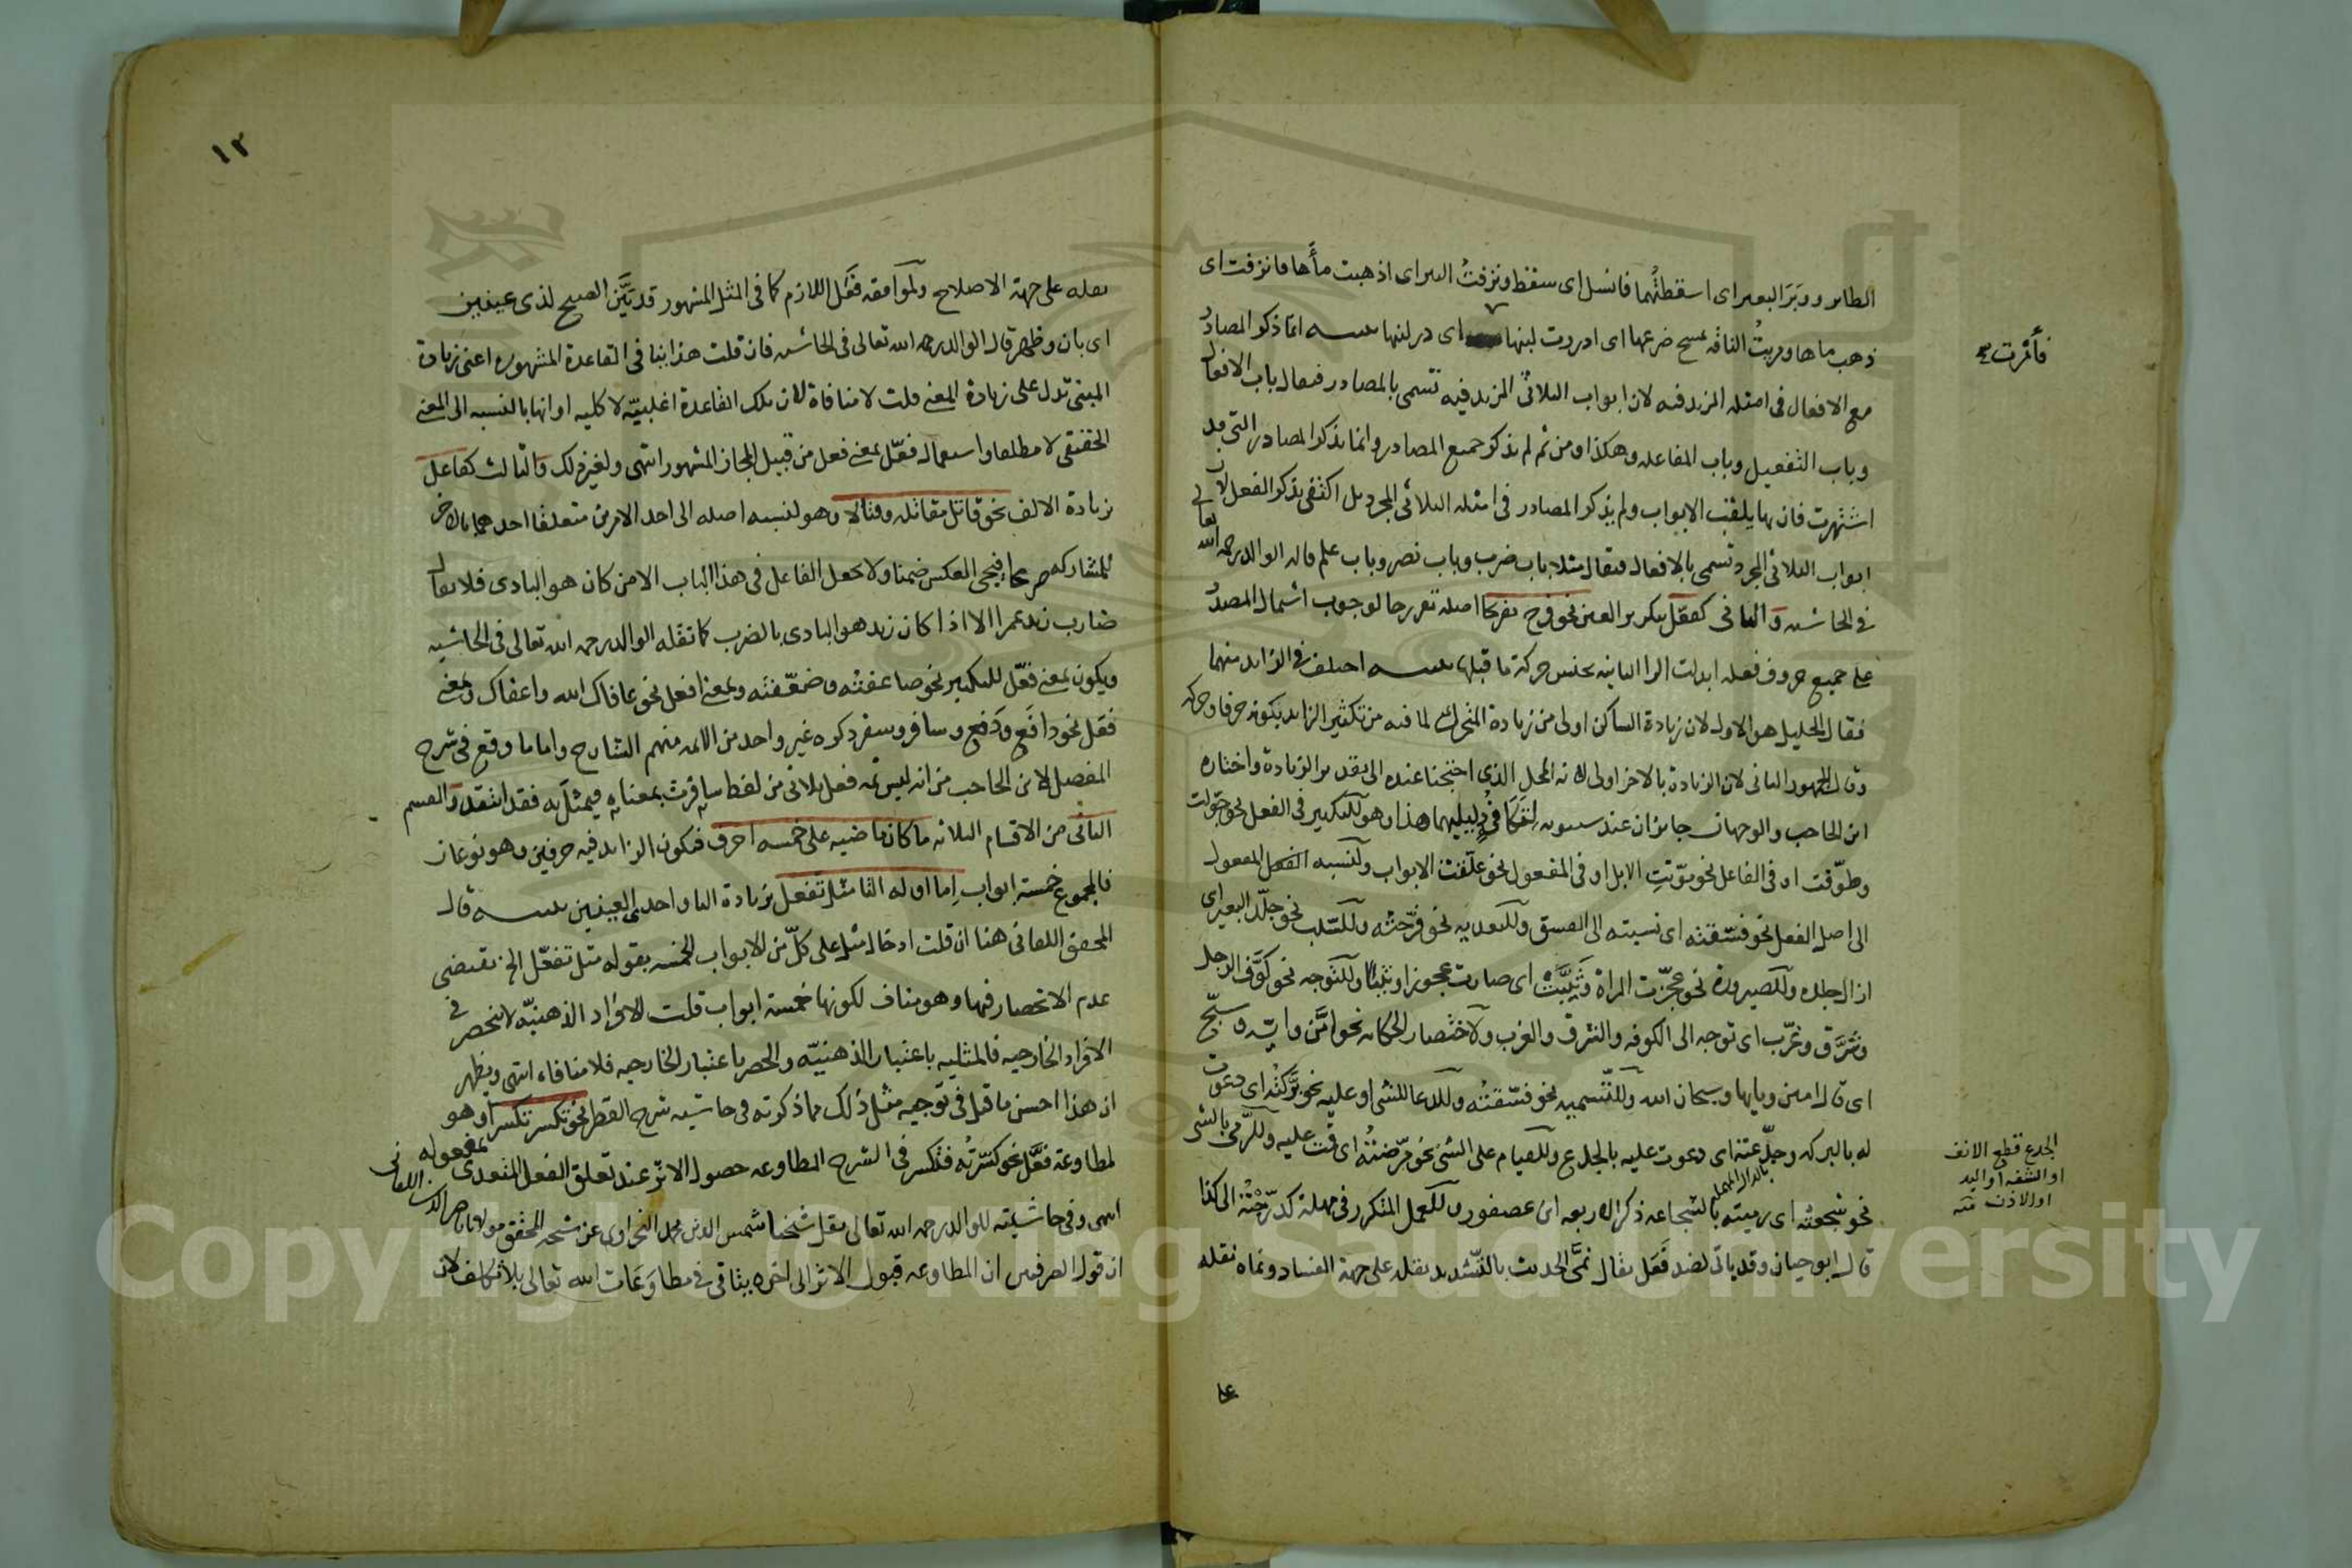 الطائر ووبر البعير اى اسقطتُهما فانسل اى سقط ونزفتُ البير اى اذهبت مأها فانزفت اى
ذهب ماها ومريتُ الناقه بمسح ضرعها اى ادررت لبنها اى در لبنها تنبيه انما ذكر المصادر
فأمْرت صح
مع الافعال فى امثله المزيد فيه لان ابواب الثلاثى المزيد فيه تسمى بالمصادر فيقال باب الافعال
وباب التفعيل وباب المفاعله وهكذا ومن ثم لم يذكر جميع المصادر وانما يذكر المصادر التى قد
اشتهرت فان بها يلقب الابواب ولم يذكر المصادر فى امثله الثلاثى المجرد بل اكتفى بذكر الفعل لان
ابواب الثلاثى المجرد تسمى بالافعال فيقال مثلا باب ضرب وباب نصر وباب علم قاله الوالد رحمه الله تعالى
فى الحاشيه وَالثانى كفعّل بتكرير العين نحو فرح تفرحا اصله تفررحا لوجوب اشتمال المصدر
على جميع حروف فعله ابدلت الرا الثانيه بجنس حركة ما قبلها تنبيه اختلف فى الزايد منهما
فقال الخليل هو الاول لان زيادة الساكن اولى من زيادة المتحرك لما فيه من تكثير الزايد بكونه حرفا وحركه
وقال الجمهور الثانى لان الزيادة بالاخر اولى لانه المحل الذى احتجنا عنده الى تقدير الزيادة واختاره
ابن الحاجب والوجهان جايزان عند سيبويه لِتَكَافُىءِ دليليهما هذا وهو للتكثير فى الفعل نحو جوّلت
وطوّفت او فى الفاعل نحو موّتتِ الابل او فى المفعول نحو غلّقت الابواب ولنسبه المفعول
الى اصل الفعل نحو فسّقته اى نسبته الى الفسق وللتعديه نحو فرّحته وللسّلب نحو جلّد البعير اى
ازال جلده وللصيرورة نحو عجّزت المراة وَثيّبَتْ اى صارت عجوزا وثيبًا وللتوجه نحو كوّف الرجل
وشرّق وغرّب اى توجه الى الكوفه والشرق والغرب ولاختصار الحكايه نحو امّن وايّه وسبّح
اى قال امين ويايها وسبحان الله وللتّسميه نحو فسّقتُه وللدعا للشى او عليه نحو برّكتُه اى دعوت
له بالبركه وجدّعته اى دعوت عليه بالجدع وللقيام على الشى نحو مرّضتُه اى قمت عليه وللرّمى بالشى
بالدال المهمله
الجدع قطع الانف
او الشفه او اليد
او الاذن منه
نحو شجعته اى رميته بالشجاعه ذكر الاربعه ابن عصفور وللعمل المتكرر فى مهلة كدرّجْتُه الى كذا
قال ابو حيان وقد ياتى لضد فَعَل يقال نمّى الحديث بالتّشديد نقله على جهة الفساد ونماه نقله
على
١٢
نقله على جهة الاصلاح ولموافقه فَعَل اللازم كما فى المثل المشهور قد بَيَّن الصبح لذى عينين
اى بان وظهر قال الوالد رحمه الله تعالى فى الحاشيه فان قلت هذا ينافى القاعدة المشهوره اعنى زيادة
المبنى تدل على زيادة المعنى قلت لا منافاة لان تلك القاعدة اغلبيّه لا كليه او انها بالنسبه الى المعنى
الحقيقى لا مطلقا واستعماله فعّل بمعنى فعل من قبيل المجاز المشهور انتهى ولغير ذلك وَالثالث كفاعل
بزيادة الالف نحو قاتل مقاتله وقتالا وهو لنسبه اصله الى احد الامرين متعلقا احدهما بالاخر
للمشاركه صريحا فيجى العكس ضمنا ولا يجعل الفاعل فى هذا الباب الا من كان هو البادى فلا يقال
ضارب زيد عمرا الا اذا كان زيد هو البادى بالضرب كما نقله الوالد رحمه الله تعالى فى الحاشيه
ويكون بمعنى فعّل للتكثير نحو ضاعفته وضعّفته وبمعنى افعل نحو عافاك الله واعفاك وبمعنى
فَعَل نحو دافَع ودَفع وسافر وسفر ذكره غير واحد من الائمه منهم الشارح واما ما وقع فى شرح
المفصل لابن الحاجب من انه ليس ثمه فعل ثلاثى من لفظ سافرت بمعناه فيمثل به فقد انتقد وَالقسم
الثانى من الاقسام الثلاثه ما كان ماضيه على خمسه احرف فيكون الزايد فيه حرفين وهو نوعان
فالمجموع خمسة ابواب اِما اوله التا مثل تفعل بزيادة التا واحدى العينين تنبيه قال
المحقق اللقانى هنا ان قلت ادخال مثل على كلّ من الابواب الخمسه بقوله مثل تفعّل الخ يقتضى
عدم الانحصار فيها وهو مناف لكونها خمسة ابواب قلت الافراد الذهنيّه لا تنحصر فى
الافراد الخارجيه فالمثليه باعتبار الذهنيّه والحصر باعتبار الخارجيه فلا منافاه انتهى ويظهر
ان هذا احسن ما قيل فى توجيه مثل ذلك مما ذكرته فى حاشيه شرح القطر نحو تكسر تكسرا وهو
لمطاوعة فعّل نحو كسّرتُه فتكسر فى الشرح المطاوعه حصول الاثر عند تعلق الفعل المتعدى بمفعوله
انتهى وفى حاشيته للوالد رحمه الله تعالى نقل شيخنا شمس الدين محمد النحراوى عن شيخه المحقق مولانا ناصر الدين اللقانى
ان قول الصرفيين ان المطاوعه قبول الاثر الى اخره يتاتى فى مطاوَعَات الله تعالى بلا تكلف لان
Copyright © King Saud University